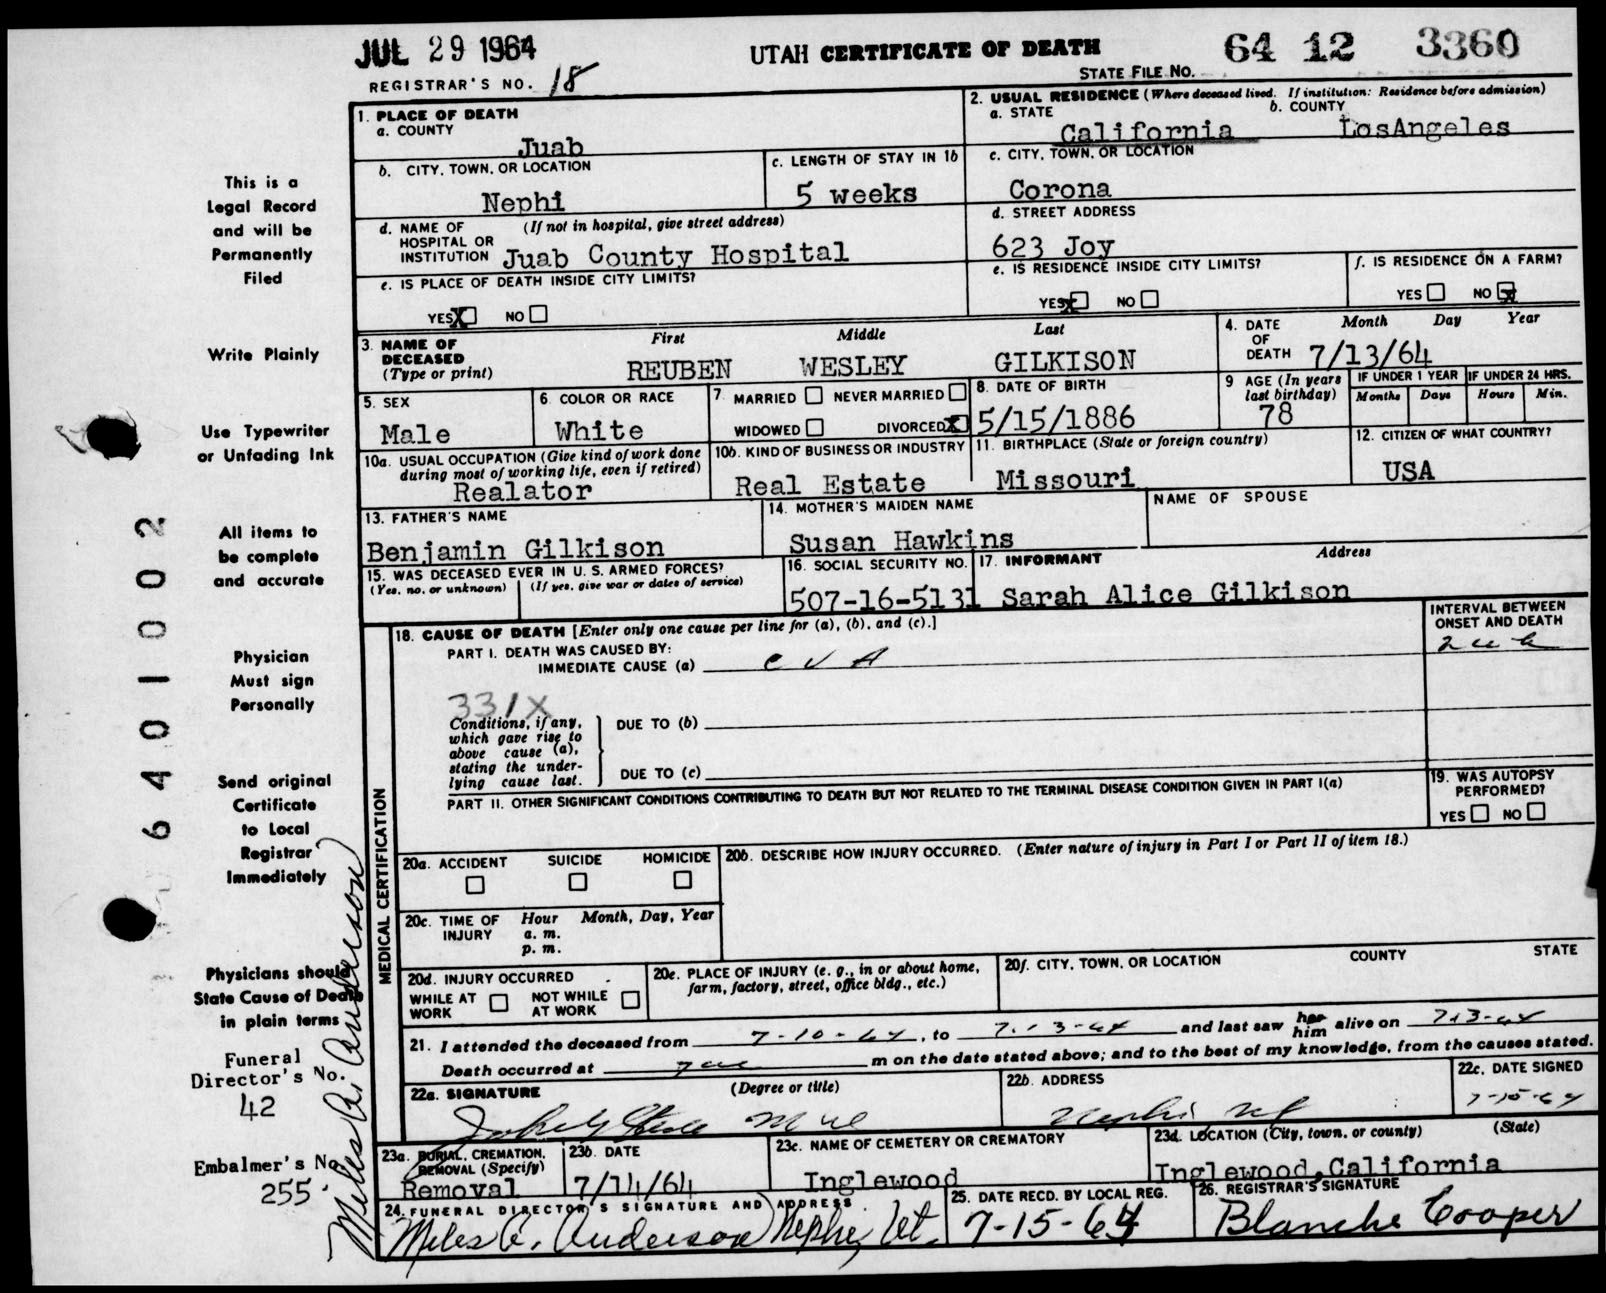 JUL 29 1964
UTAH CERTIFICATE OF DEATH
64 12 3360
REGISTRAR'S NO. 18
STATE FILE NO.
This is a
Legal Record
and will be
Permanently
Filed
Write Plainly
Use Typewriter
or Unfading Ink
All items to
be complete
and accurate
Physician
Must sign
Personally
Send original
Certificate
to Local
Registrar
Immediately
Physicians should
State Cause of Death
in plain terms
Funeral
Director's No.
42
Embalmer's No.
255.
6401002
Miles A. Anderson
1. PLACE OF DEATH
a. COUNTY
Juab
2. USUAL RESIDENCE (Where deceased lived. If institution: Residence before admission)
a. STATE
California
b. COUNTY
LosAngeles
b. CITY, TOWN, OR LOCATION
Nephi
c. LENGTH OF STAY IN 1b
5 weeks
c. CITY, TOWN, OR LOCATION
Corona
d. NAME OF HOSPITAL OR INSTITUTION
(If not in hospital, give street address)
Juab County Hospital
d. STREET ADDRESS
623 Joy
e. IS PLACE OF DEATH INSIDE CITY LIMITS?
YES X NO
e. IS RESIDENCE INSIDE CITY LIMITS?
YES X NO
f. IS RESIDENCE ON A FARM?
YES NO X
3. NAME OF DECEASED
(Type or print)
First Middle Last
REUBEN WESLEY GILKISON
4. DATE OF DEATH
Month Day Year
7/13/64
5. SEX
Male
6. COLOR OR RACE
White
7. MARRIED NEVER MARRIED
WIDOWED DIVORCED X
8. DATE OF BIRTH
5/15/1886
9 AGE (In years last birthday)
78
IF UNDER 1 YEAR
Months Days
IF UNDER 24 HRS.
Hours Min.
10a. USUAL OCCUPATION (Give kind of work done during most of working life, even if retired)
Realator
10b. KIND OF BUSINESS OR INDUSTRY
Real Estate
11. BIRTHPLACE (State or foreign country)
Missouri
12. CITIZEN OF WHAT COUNTRY?
USA
13. FATHER'S NAME
Benjamin Gilkison
14. MOTHER'S MAIDEN NAME
Susan Hawkins
NAME OF SPOUSE
15. WAS DECEASED EVER IN U. S. ARMED FORCES?
(Yes, no, or unknown) (If yes, give war or dates of service)
16. SOCIAL SECURITY NO.
507-16-5131
17. INFORMANT Address
Sarah Alice Gilkison
MEDICAL CERTIFICATION
18. CAUSE OF DEATH [Enter only one cause per line for (a), (b), and (c).]
PART I. DEATH WAS CAUSED BY:
IMMEDIATE CAUSE (a) C V A
INTERVAL BETWEEN ONSET AND DEATH
331X
Conditions, if any, which gave rise to above cause (a), stating the underlying cause last.
DUE TO (b)
DUE TO (c)
PART II. OTHER SIGNIFICANT CONDITIONS CONTRIBUTING TO DEATH BUT NOT RELATED TO THE TERMINAL DISEASE CONDITION GIVEN IN PART I(a)
19. WAS AUTOPSY PERFORMED?
YES NO
20a. ACCIDENT SUICIDE HOMICIDE
20b. DESCRIBE HOW INJURY OCCURRED. (Enter nature of injury in Part I or Part II of item 18.)
20c. TIME OF INJURY
Hour Month, Day, Year
a. m.
p. m.
20d. INJURY OCCURRED
WHILE AT WORK NOT WHILE AT WORK
20e. PLACE OF INJURY (e. g., in or about home, farm, factory, street, office bldg., etc.)
20f. CITY, TOWN, OR LOCATION COUNTY STATE
21. I attended the deceased from 7-10-64, to 7-13-64 and last saw her him alive on 7-13-64
Death occurred at m on the date stated above; and to the best of my knowledge, from the causes stated.
22a. SIGNATURE (Degree or title)
22b. ADDRESS
Nephi Ut
22c. DATE SIGNED
7-15-64
23a. BURIAL, CREMATION, REMOVAL (Specify)
Removal
23b. DATE
7/14/64
23c. NAME OF CEMETERY OR CREMATORY
Inglewood
23d. LOCATION (City, town, or county) (State)
Inglewood, California
24. FUNERAL DIRECTOR'S SIGNATURE AND ADDRESS
Miles A. Anderson Nephi, Ut.
25. DATE RECD. BY LOCAL REG.
7-15-64
26. REGISTRAR'S SIGNATURE
Blanche Cooper